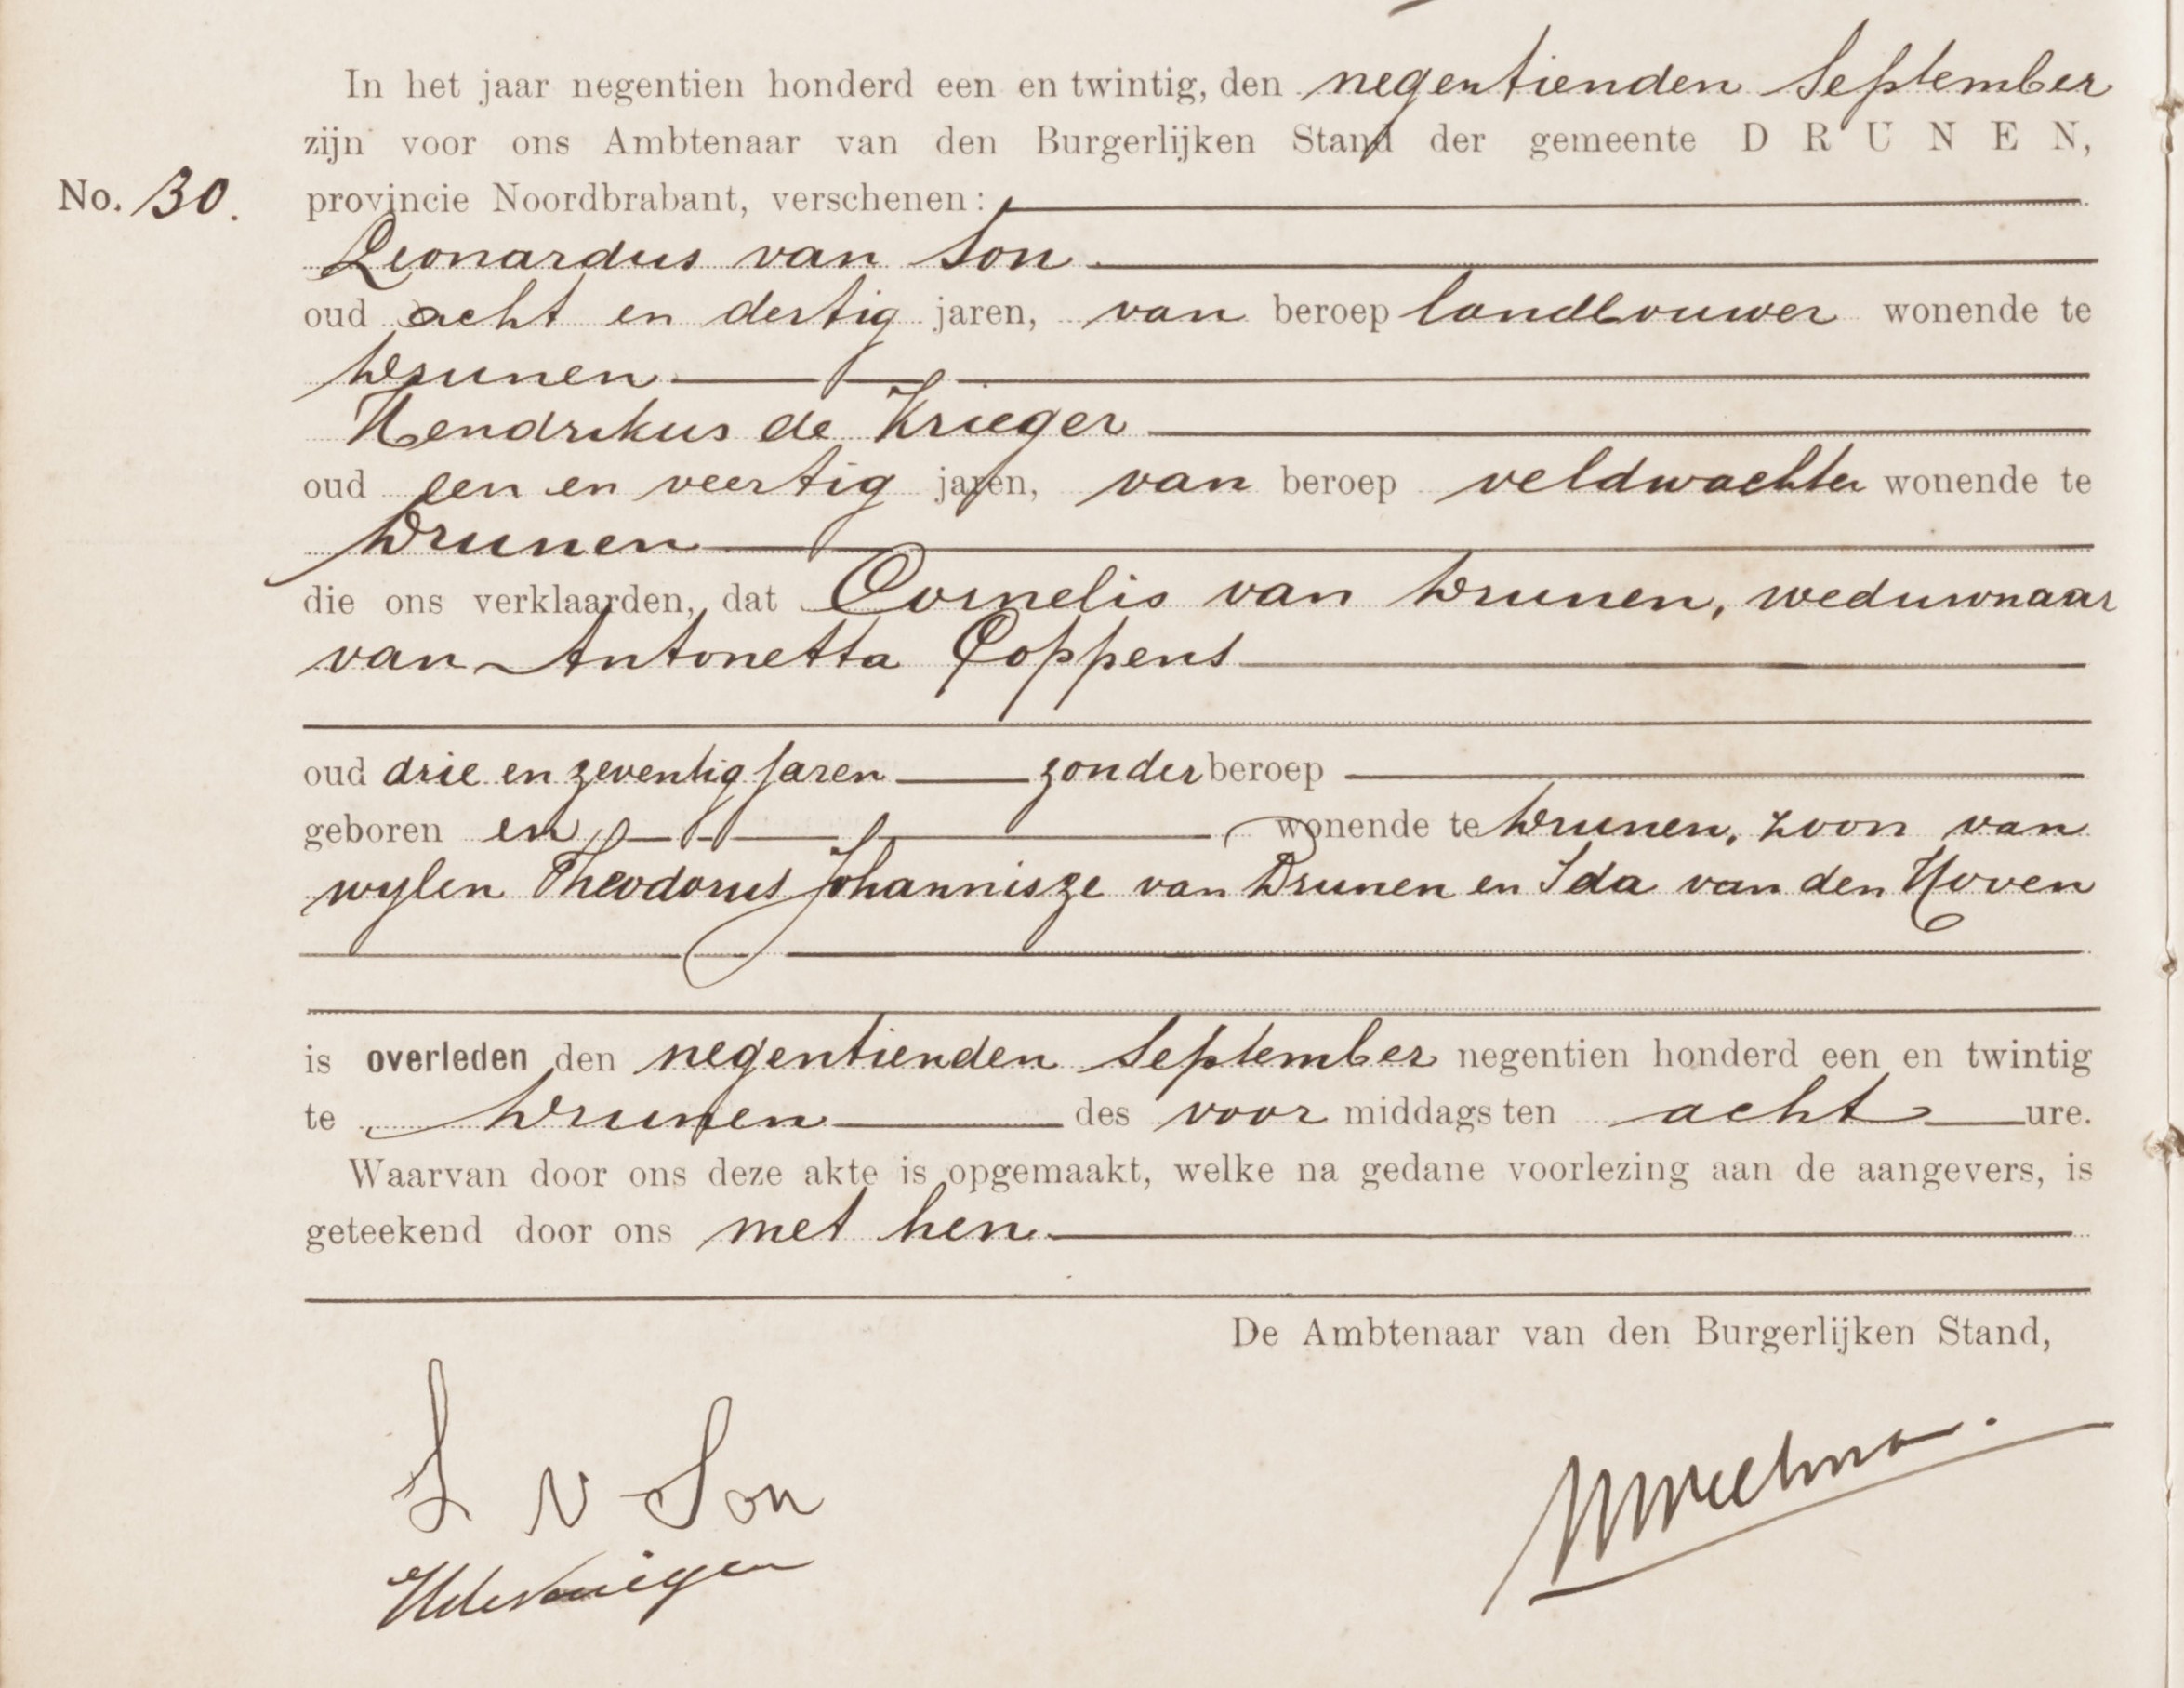 In het jaar negentien honderd een en twintig, den negentienden September
zijn voor ons Ambtenaar van den Burgerlijken Stand der gemeente DRUNEN,
No. 30. provincie Noordbrabant, verschenen:
Leonardus van Son
oud acht en dertig jaren, van beroep landbouwer wonende te
Drunen
Hendrikus de Krieger
oud een en veertig jaren, van beroep veldwachter wonende te
Drunen
die ons verklaarden, dat Cornelis van Drunen, weduwnaar
van Antonetta Coppens
oud drie en zeventig jaren zonder beroep
geboren en wonende te Drunen, zoon van
wylen Theodorus Johannisze van Drunen en Ida van den Hoven
is overleden den negentienden September negentien honderd een en twintig
te Drunen des voor middags ten acht ure.
Waarvan door ons deze akte is opgemaakt, welke na gedane voorlezing aan de aangevers, is
geteekend door ons met hen
De Ambtenaar van den Burgerlijken Stand,
L v Son